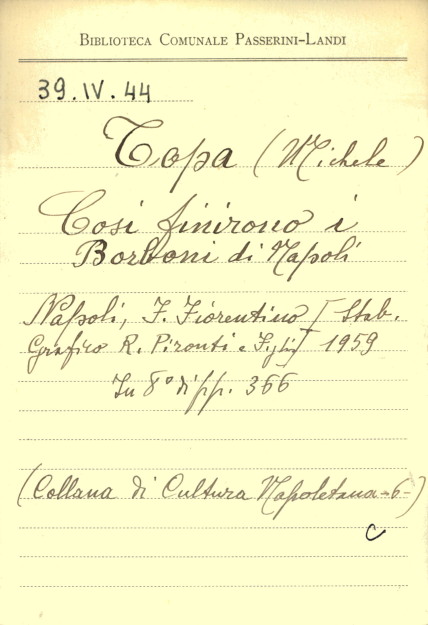 BIBLIOTECA COMUNALE PASSERINI-LANDI
39.IV.44
Topa (Michele)
Così finirono i
Borboni di Napoli
Napoli, F. Fiorentino [Stab.
Grafico R. Pironti e Figli] 1959
In 8° di pp. 366
(Collana di Cultura Napoletana -6-)
C